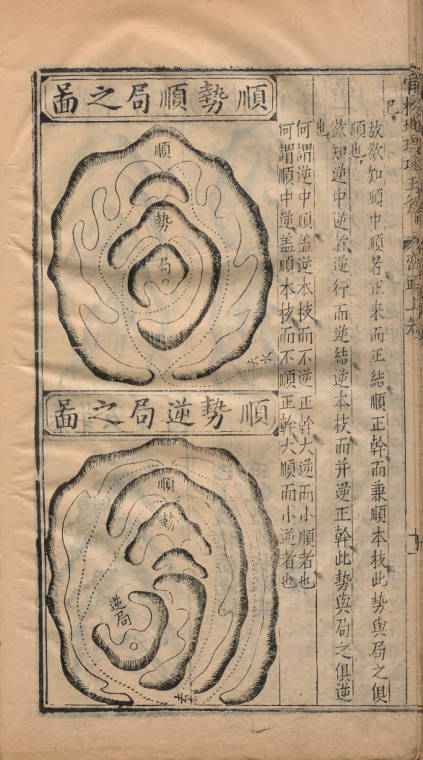 故欲知順中順者正來而正結順正幹而兼順本枝此勢與局之俱
順也
欲知逆中逆者逆行而逆結逆本枝而并逆正幹此勢與局之俱逆
也
何謂逆中順盖逆本枝而不逆正幹大逆而小順者也
何謂順中逆盖順本枝而不順正幹大順而小逆者也
順勢順局之啚
順
勢
局
順勢逆局之啚
順
勢
逆局